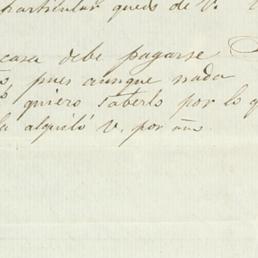 particular quedo de V.
casa debe pagarse
pues aunque nada
quiero saberlo por lo q
la alquiló V. por año.